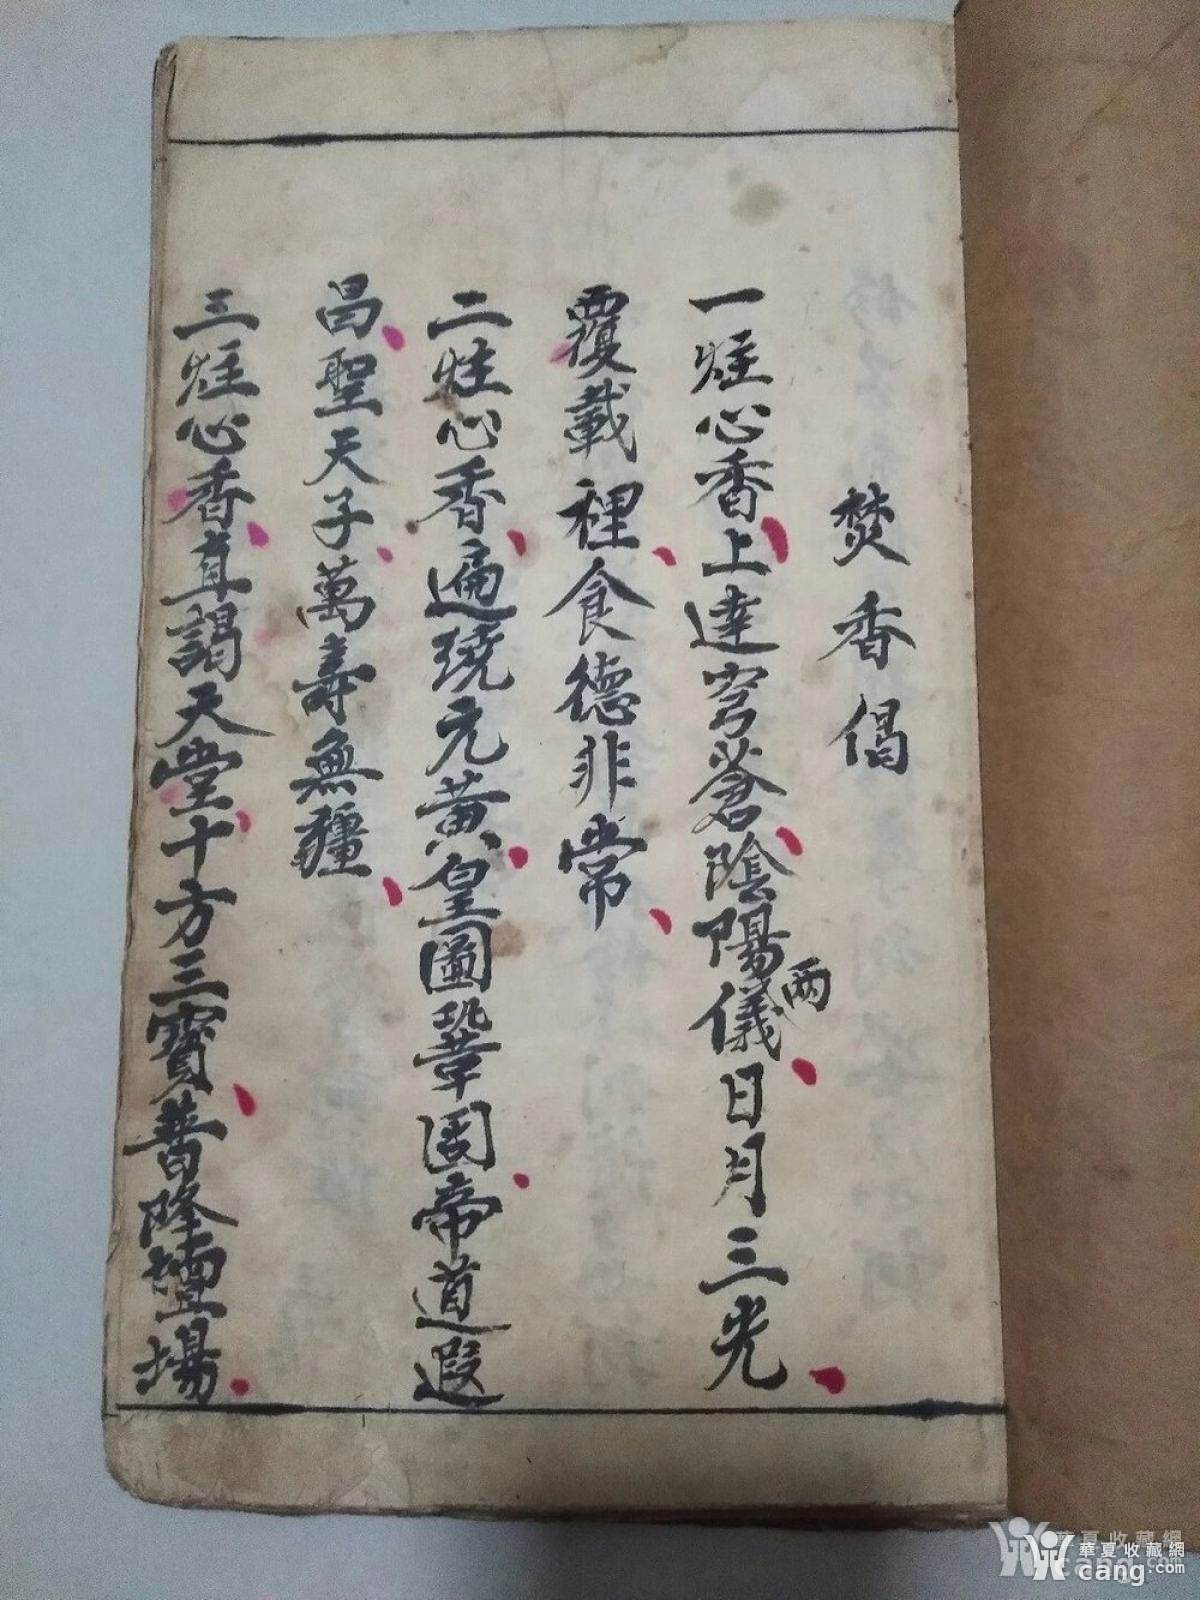 焚香偈
一炷心香上達穹蒼陰陽兩儀日月三光
覆載裡食德非常
二炷心香遍繞元黃皇圖鞏固帝道遐
昌聖天子萬壽無疆
三炷心香直謁天堂十方三寶普降壇場
華夏收藏網
cang.com